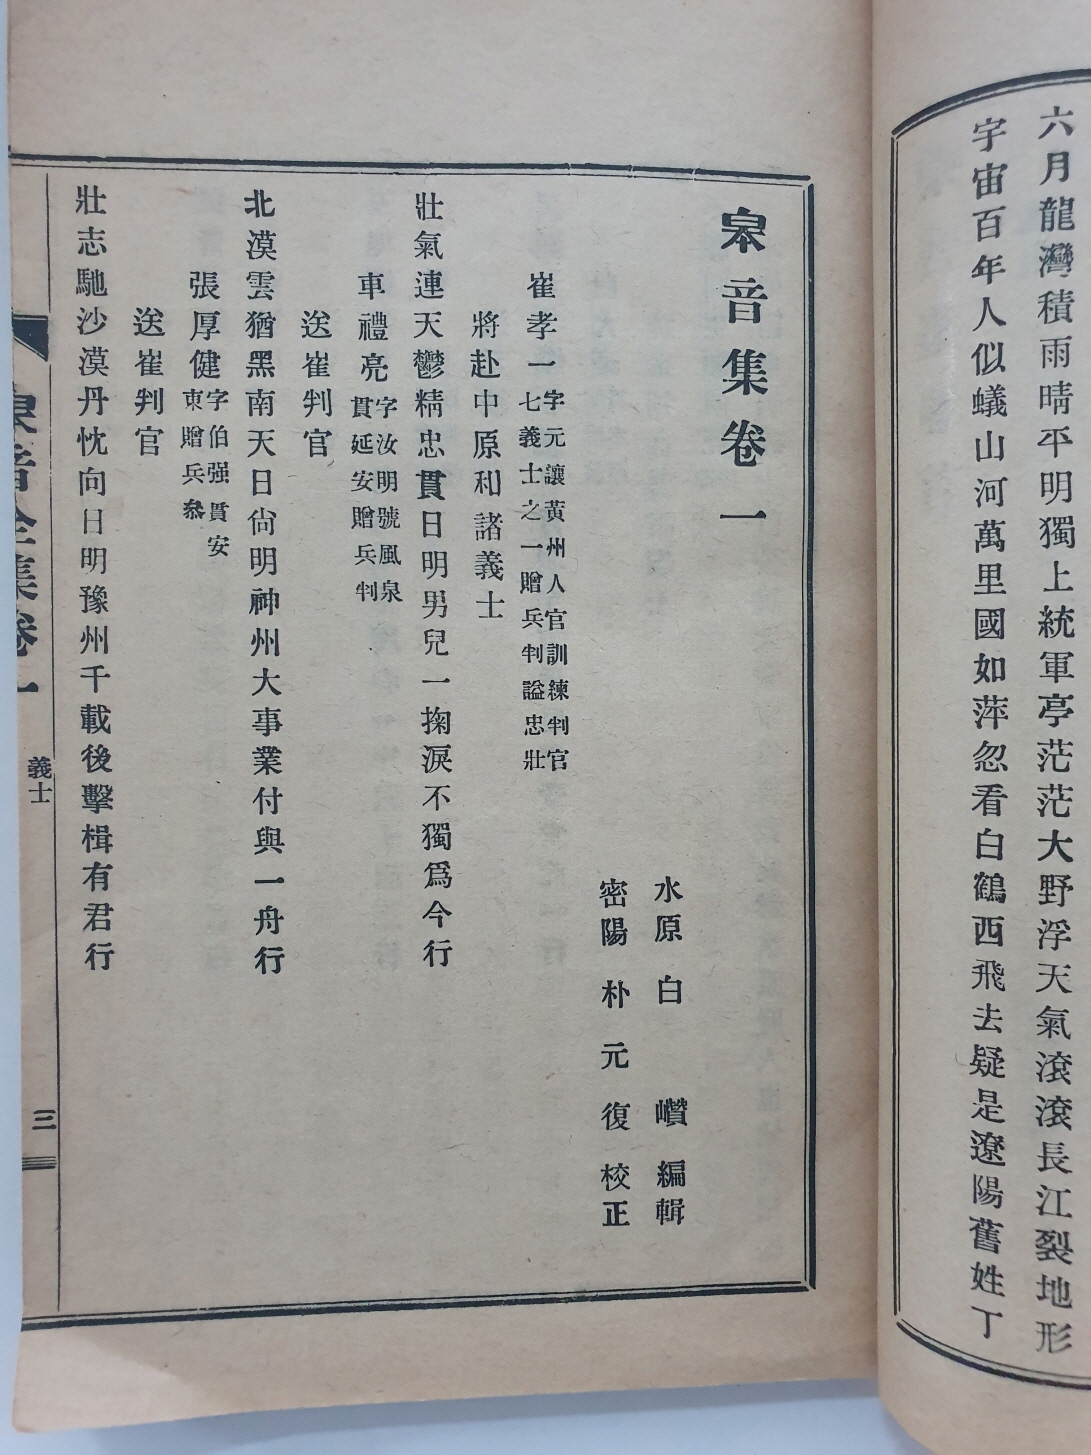 六月龍灣積雨晴平明獨上統軍亭茫茫大野浮天氣滾滾長江裂地形
宇宙百年人似蟻山河萬里國如萍忽看白鶴西飛去疑是遼陽舊姓丁
皋音集卷一
水原 白 巑 編輯
密陽 朴元復 校正
崔孝一 字元讓黄州人官訓練判官
七義士之一贈兵判謚忠壯
將赴中原和諸義士
壯氣連天鬱精忠貫日明男兒一掬淚不獨爲今行
車禮亮 字汝明號風泉
貫延安贈兵判
送崔判官
北漠雲猶黑南天日尙明神州大事業付與一舟行
張厚健 字伯强貫安
東贈兵叅
送崔判官
壯志馳沙漠丹忱向日明豫州千載後擊楫有君行
皋音全集卷一 義士 三